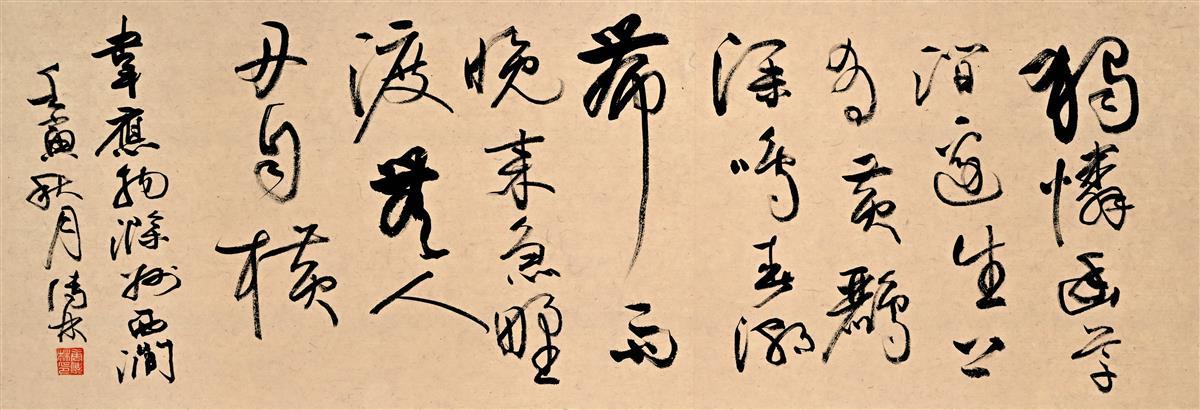 獨憐幽草
澗邊生上
有黃鸝
深鳴春潮
帶雨
晚來急野
渡無人
舟自橫
韋應物滁州西澗
壬寅秋月